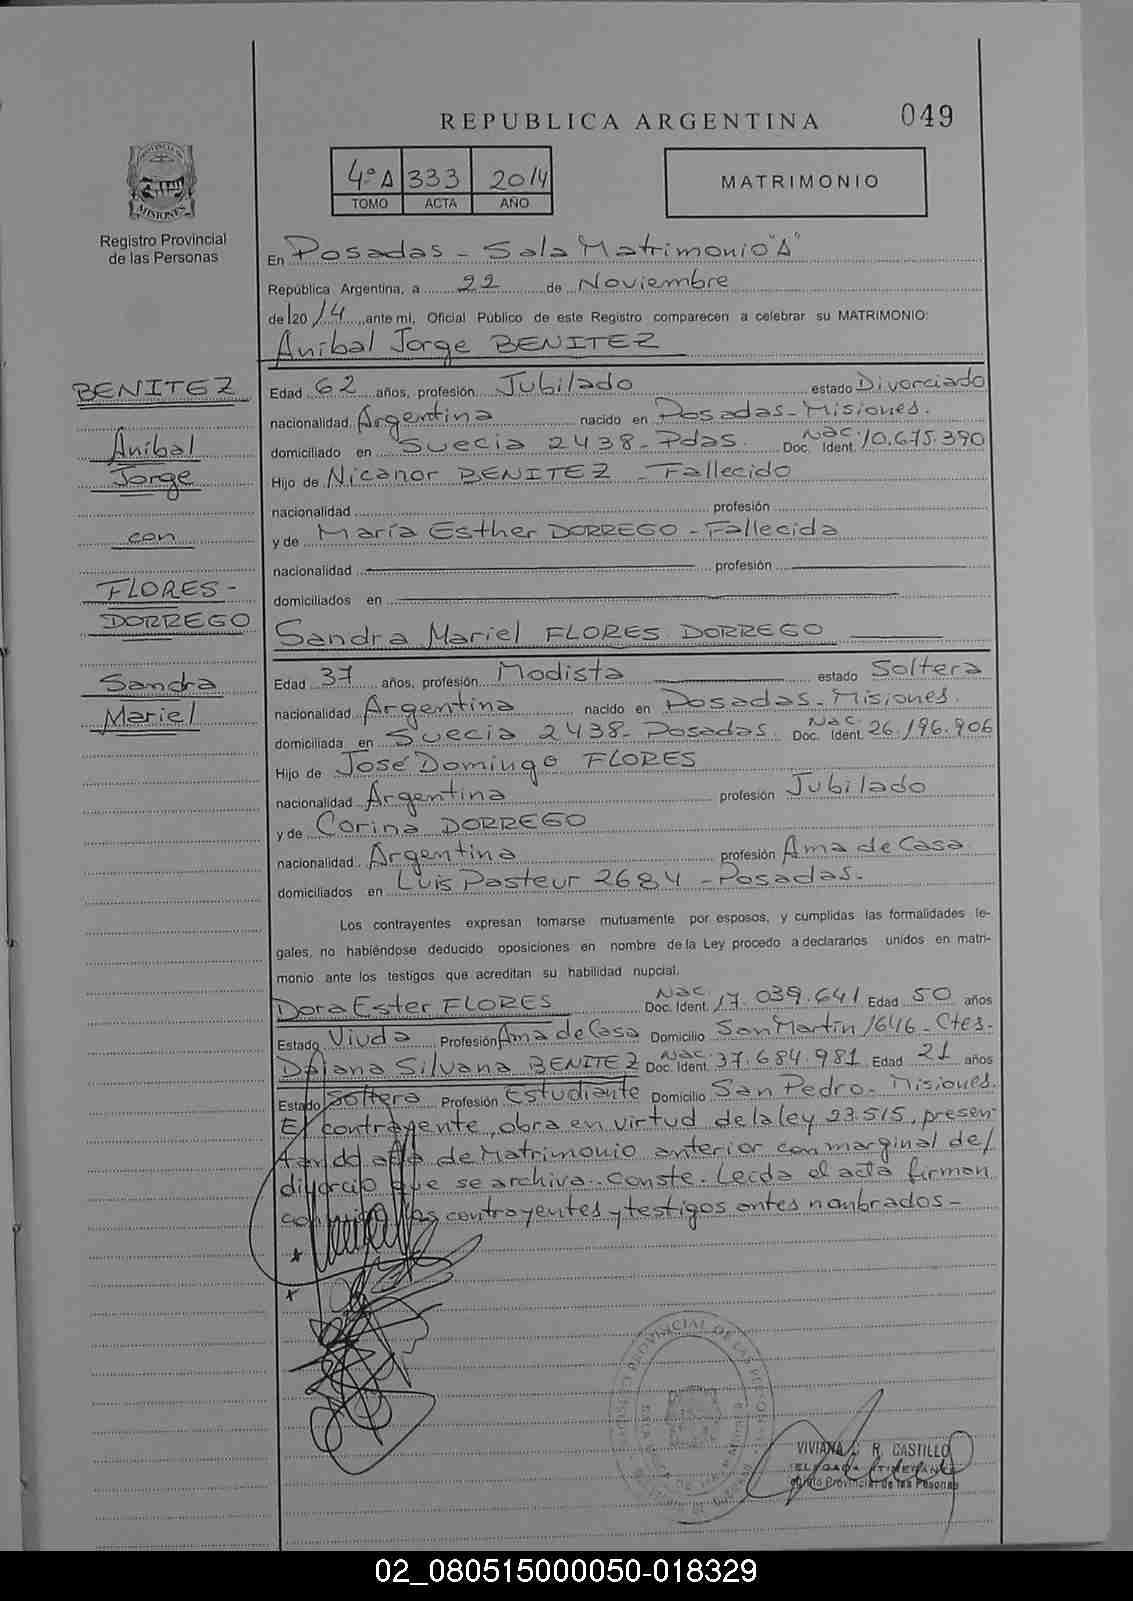 REPUBLICA ARGENTINA 049
4º A 333 2014
TOMO ACTA AÑO
MATRIMONIO
PROVINCIA DE
MISIONES
Registro Provincial
de las Personas
En Posadas - Sala Matrimonio "A"
República Argentina, a 22 de Noviembre
de 2014, ante mi, Oficial Público de este Registro comparecen a celebrar su MATRIMONIO:
Aníbal Jorge BENITEZ
BENITEZ
Aníbal
Jorge
con
FLORES-
DORREGO
Sandra
Mariel
Edad 62 años, profesión Jubilado estado Divorciado
nacionalidad Argentina nacido en Posadas-Misiones.
domiciliado en Suecia 2438-Pdas. Doc. Nac. Ident. 10.675.390
Hijo de Nicanor BENITEZ - Fallecido
nacionalidad profesión
y de María Esther DORREGO - Fallecida
nacionalidad profesión
domiciliados en
Sandra Mariel FLORES DORREGO
Edad 37 años, profesión Modista estado Soltera
nacionalidad Argentina nacido en Posadas-Misiones.
domiciliada en Suecia 2438-Posadas. Doc. Nac. Ident. 26.196.906
Hijo de José Domingo FLORES
nacionalidad Argentina profesión Jubilado
y de Corina DORREGO
nacionalidad Argentina profesión Ama de Casa
domiciliados en Luis Pasteur 2684 - Posadas.
Los contrayentes expresan tomarse mutuamente por esposos, y cumplidas las formalidades le-
gales, no habiéndose deducido oposiciones en nombre de la Ley procedo a declararlos unidos en matri-
monio ante los testigos que acreditan su habilidad nupcial.
Dora Ester FLORES Doc. Nac. Ident. 17.039.641 Edad 50 años
Estado Viuda Profesión Ama de Casa Domicilio San Martín 1646-Ctes.
Daiana Silvana BENITEZ Doc. Nac. Ident. 37.684.981 Edad 21 años
Estado Soltera Profesión Estudiante Domicilio San Pedro-Misiones.
El contrayente, obra en virtud de la ley 23.515, presen-
tando acta de Matrimonio anterior con marginal de
divorcio que se archiva. Conste. Leída el acta firman
los contrayentes y testigos antes nombrados-
VIVIANA R. CASTILLO
DELEGADA ITINERANTE
Registro Provincial de las Personas
02_080515000050-018329